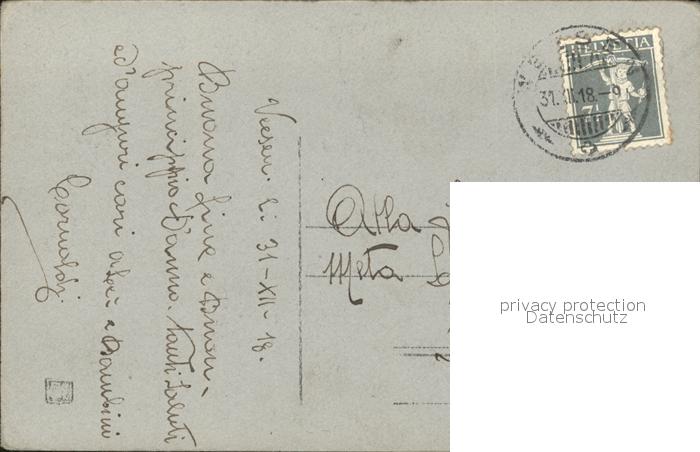 li 31-XII-18.
Buona fine e Buon-
principio d'anno. tanti saluti
ed auguri cari a Lei e Bambini
Alla
Meta
HELVETIA
31.XII.18.-9
7½
privacy protection
Datenschutz